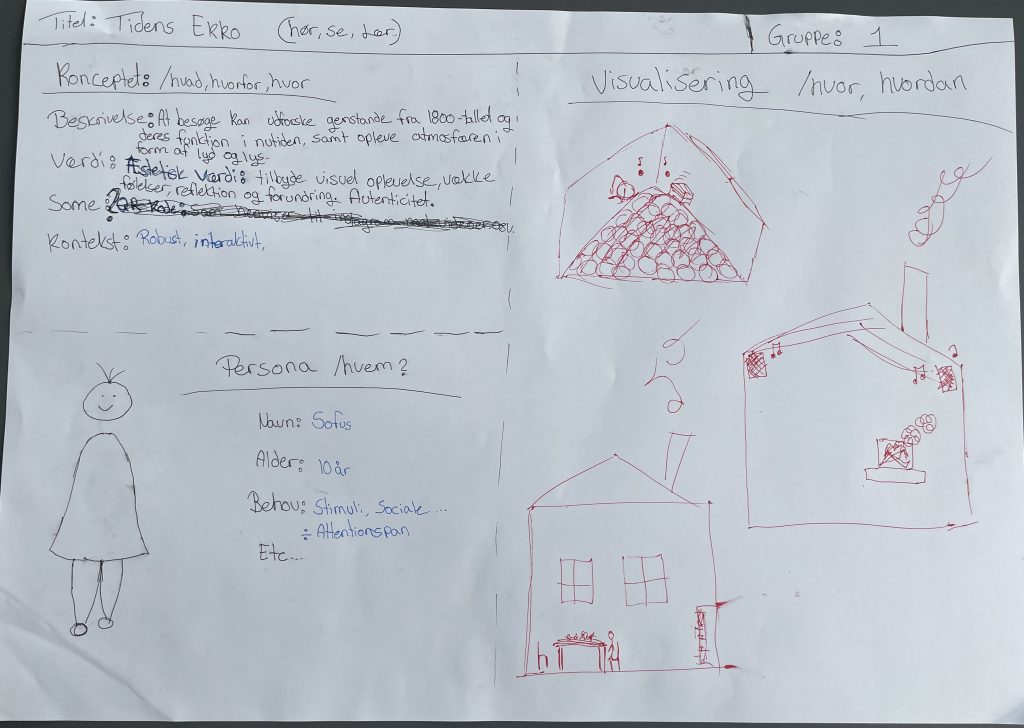 Titel: Tidens Ekko (hør, se, lær)
Gruppe: 1
Konceptet: /hvad, hvorfor, hvor
Beskrivelse: At besøge kan udforske genstande fra 1800-tallet og
deres funktion i nutiden, samt opleve atmosfæren i
form af lyd og lys.
Værdi: Æstetisk Værdi: tilbyde visuel oplevelse, vække
følelser, reflektion og forundring. Autenticitet.
Some: ? QR Kode: som
Kontekst: Robust, interaktivt,
Persona /hvem?
Navn: Sofus
Alder: 10 år
Behov: Stimuli, Sociale ...
÷ Attentionspan
Etc...
Visualisering /hvor, hvordan